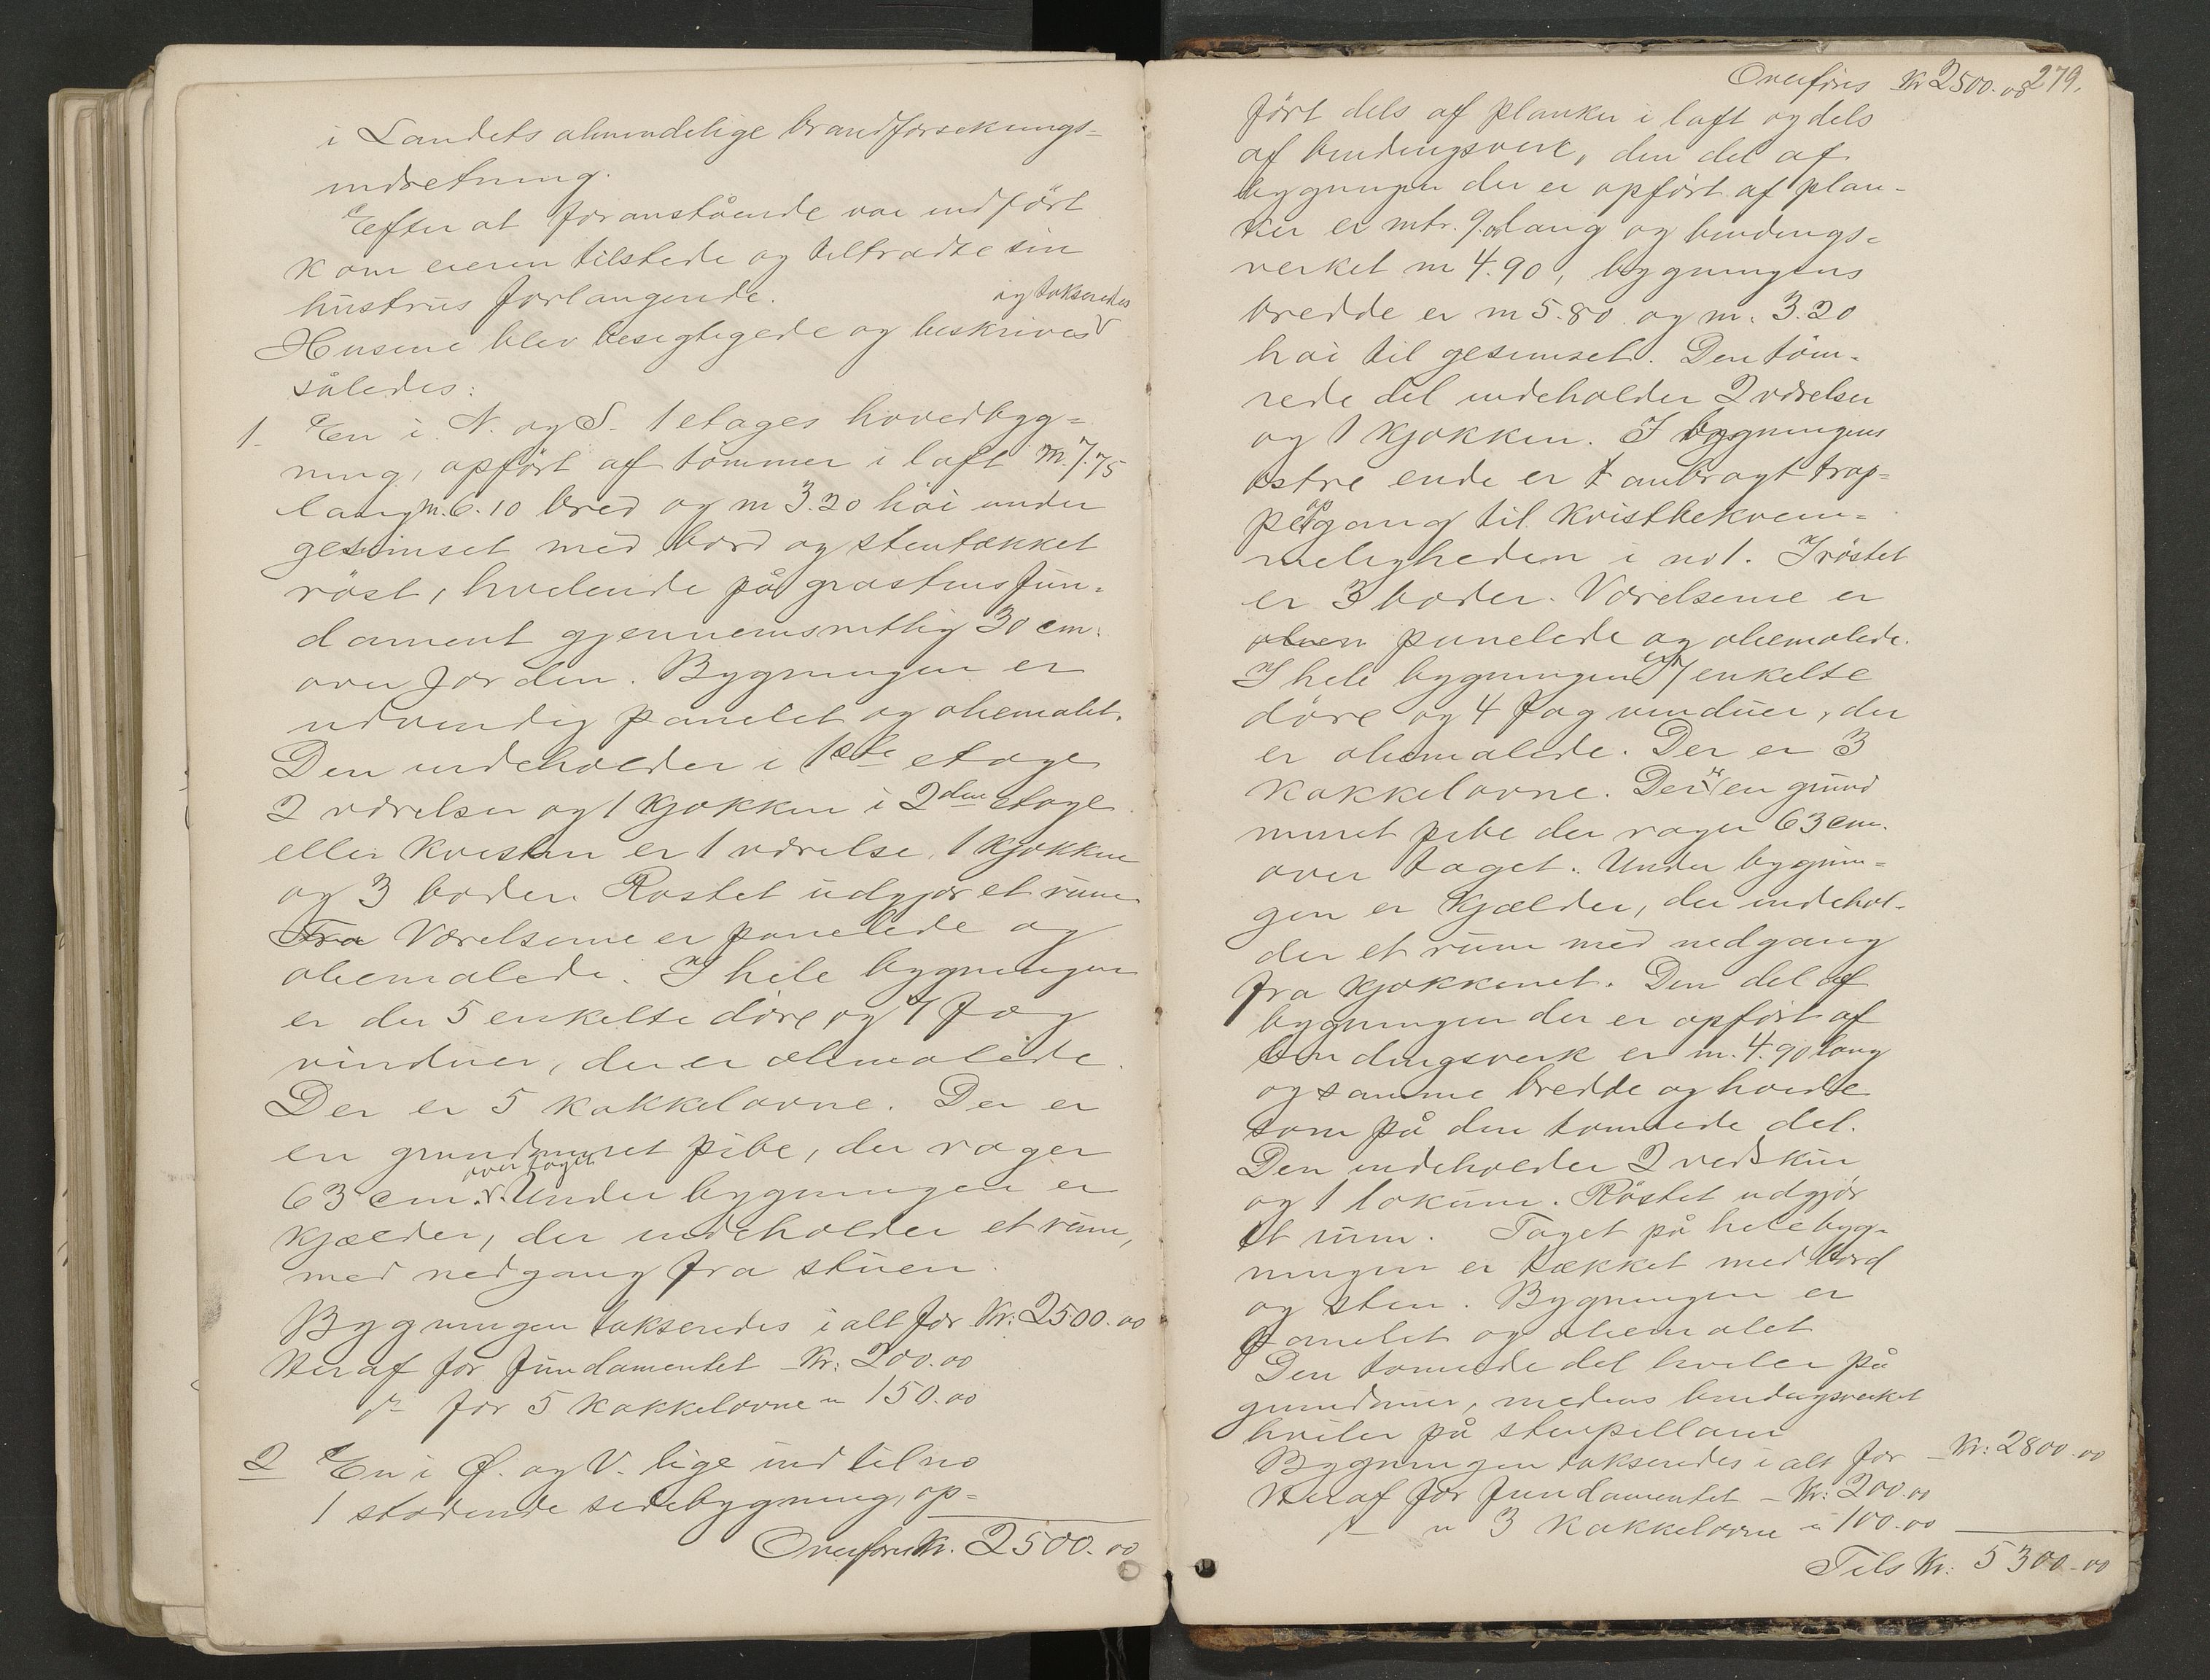 i Landets almindelige brandforsikrings-
indretning.
Efter at foranstående var indført
kom eieren tilstede og tiltrådte sin
hustrus forlangende.
og takseredes
Husene blev besigtigede og beskrives
således:
1. En i N. og S. 1 etages hovedbyg-
ning, opført af tømmer i laft m. 7.75
lang m. 6.10 bred og m 3.20 høi under
gesimset med bord og stentækket
røst, hvilende på gråstensfun-
dament gjennemsnitlig 30 cm.
over jorden. Bygningen er
udvendig panelet og oliemalet.
Den indeholder i 1ste etage
2 værelser og 1 kjøkken i 2den etage
eller kvisten er 1 værelse, 1 kjøkken
og 3 boder. Røstet udgjør et rum
Fra Værelserne er panelede og
oliemalede. I hele bygningen
er der 5 enkelte døre og 7 fag
vinduer, der er oliemalede.
Der er 5 kakkelovne. Der er
en grundmuret pibe, der rager
over taget
63 cm. Under bygningen er
kjælder, der indeholder et rum,
med nedgang fra stuen.
Bygningen takseredes i alt for Kr: 2500.00
Heraf for fundamentet – Kr: 200.00
for 5 kakkelovne " 150.00
2 En i Ø. og V. lige ind til no
1 stødende sidebygning, op-
Overføres Kr. 2500.00
Overføres Kr 2500.00 279.
ført dels af planker i laft og dels
af bindingsverk, den del af
bygningen der er opført af plan-
ker er mtr. 9.00 lang og bindings-
verket m 4.90, bygningens
bredde er m 5.80 og m. 3.20
høi til gesimset. Den tøm-
rede del indeholder 2 værelser
og 1 kjøkken. I bygningens
østre ende er t anbragt trap-
peopgang til kvistbekvem-
meligheden i no 1. I røstet
er 3 boder. Værelserne er
panelede og oliemalede.
er
I hele bygningen 7 enkelte
døre og 4 fag vinduer, der
er oliemalede. Der er 3
kakkelovne. Der er en grund
muret pibe der rager 63 cm.
over taget. Under bygnin-
gen er kjælder, der indehol-
der et rum med nedgang
fra kjøkkenet. Den del af
bygningen der er opført af
bindingsverk er m. 4.90 lang
og samme bredde og høide
som på den tømrede del.
Den indeholder 2 vedskur
og 1 lokum. Røstet udgjør
et rum. Taget på hele byg-
ningen er tækket med bord
og sten. Bygningen er
panelet og oliemalet
Den tømrede del hviler på
grundmur, medens bindingsverket
hviler på stenpillarer
Bygningen takseredes i alt for – Kr: 2800.00
Heraf for fundamentet – Kr: 200.00
" 3 kakkelovne " 100.00
Tils Kr: 5300.00